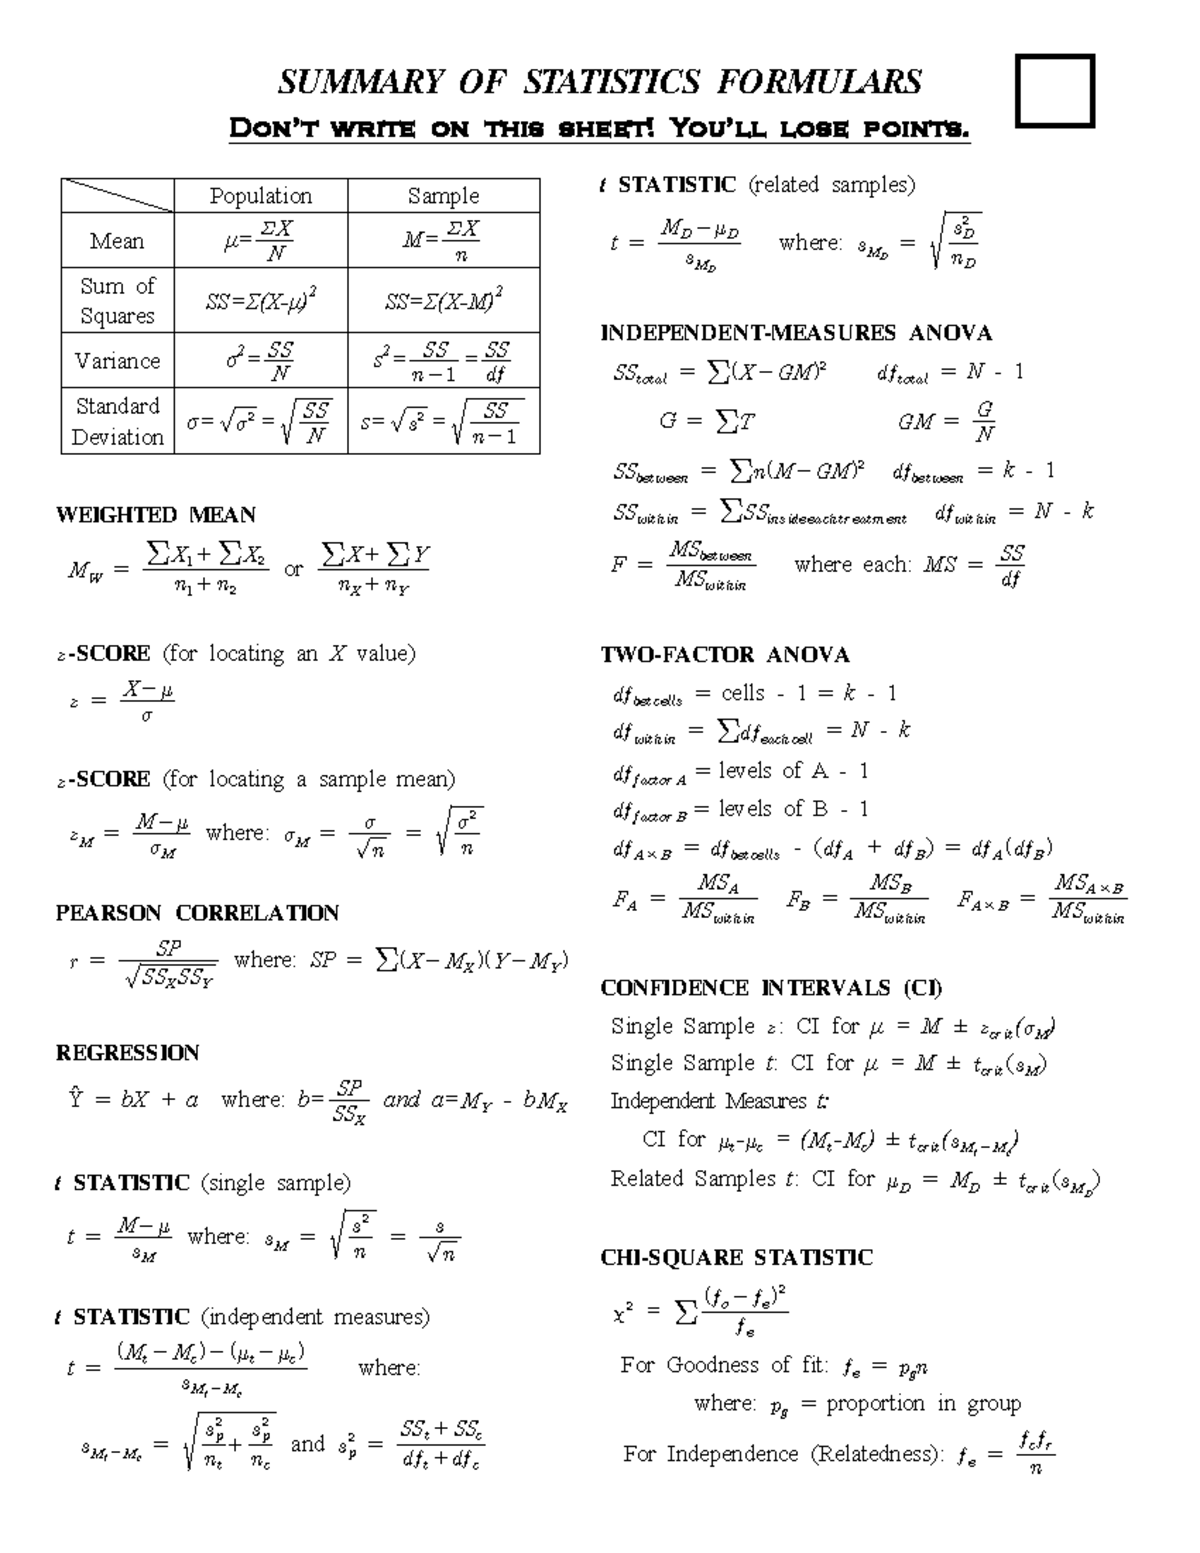 SUMMARY OF STATISTICS FORMULARS
DON'T WRITE ON THIS SHEET! YOU'LL LOSE POINTS.
Population Sample
Mean μ=ΣX/N M=ΣX/n
Sum of Squares SS=Σ(X-μ)² SS=Σ(X-M)²
Variance σ²=SS/N s²=SS/(n−1)=SS/df
Standard Deviation σ=√σ²=√(SS/N) s=√s²=√(SS/(n−1))
WEIGHTED MEAN
M_W = (∑X₁+∑X₂)/(n₁+n₂) or (∑X+∑Y)/(n_X+n_Y)
z-SCORE (for locating an X value)
z = (X−μ)/σ
z-SCORE (for locating a sample mean)
z_M = (M−μ)/σ_M where: σ_M = σ/√n = √(σ²/n)
PEARSON CORRELATION
r = SP/√(SS_X SS_Y) where: SP = ∑(X−M_X)(Y−M_Y)
REGRESSION
Ŷ = bX + a where: b=SP/SS_X and a=M_Y - bM_X
t STATISTIC (single sample)
t = (M−μ)/s_M where: s_M = √(s²/n) = s/√n
t STATISTIC (independent measures)
t = ((M_t−M_c)−(μ_t−μ_c))/s_(M_t−M_c) where:
s_(M_t−M_c) = √(s²_p/n_t + s²_p/n_c) and s²_p = (SS_t+SS_c)/(df_t+df_c)
t STATISTIC (related samples)
t = (M_D−μ_D)/s_(M_D) where: s_(M_D) = √(s²_D/n_D)
INDEPENDENT-MEASURES ANOVA
SS_total = ∑(X−GM)² df_total = N - 1
G = ∑T GM = G/N
SS_between = ∑n(M−GM)² df_between = k - 1
SS_within = ∑SS_insideeachtreatment df_within = N - k
F = MS_between/MS_within where each: MS = SS/df
TWO-FACTOR ANOVA
df_betcells = cells - 1 = k - 1
df_within = ∑df_eachcell = N - k
df_factor A = levels of A - 1
df_factor B = levels of B - 1
df_A×B = df_betcells - (df_A + df_B) = df_A(df_B)
F_A = MS_A/MS_within F_B = MS_B/MS_within F_A×B = MS_A×B/MS_within
CONFIDENCE INTERVALS (CI)
Single Sample z: CI for μ = M ± z_crit(σ_M)
Single Sample t: CI for μ = M ± t_crit(s_M)
Independent Measures t:
CI for μ_t-μ_c = (M_t-M_c) ± t_crit(s_(M_t−M_c))
Related Samples t: CI for μ_D = M_D ± t_crit(s_(M_D))
CHI-SQUARE STATISTIC
χ² = ∑(f_o−f_e)²/f_e
For Goodness of fit: f_e = p_g n
where: p_g = proportion in group
For Independence (Relatedness): f_e = f_c f_r/n